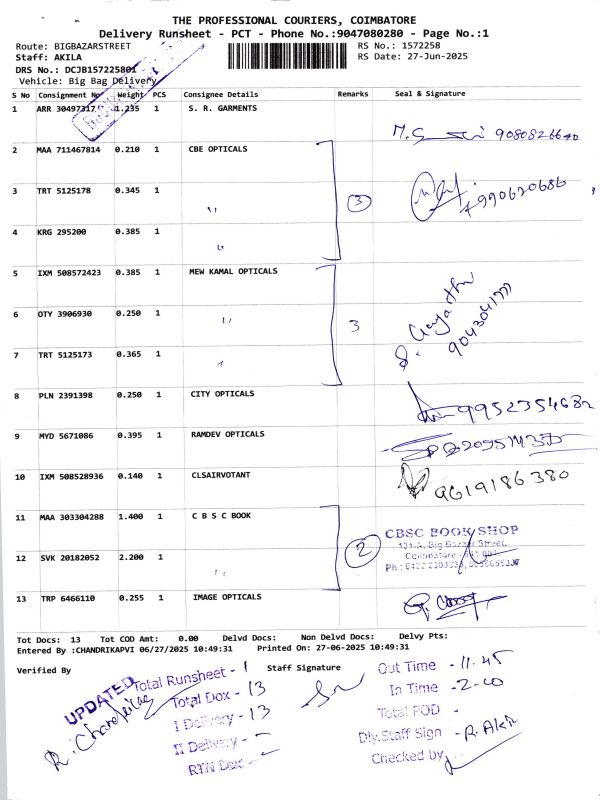 THE PROFESSIONAL COURIERS, COIMBATORE
Delivery Runsheet - PCT - Phone No.:9047080280 - Page No.:1
Route: BIGBAZARSTREET
RS No.: 1572258
Staff: AKILA
RS Date: 27-Jun-2025
DRS No.: DCJB157225801
Vehicle: Big Bag Delivery
S No Consignment No Weight PCS Consignee Details Remarks Seal & Signature
1 ARR 30497317 1.235 1 S. R. GARMENTS
9080826640
2 MAA 711467814 0.210 1 CBE OPTICALS
3 TRT 5125178 0.345 1 " 3 7990620686
4 KRG 295200 0.385 1 "
5 IXM 508572423 0.385 1 MEW KAMAL OPTICALS
6 OTY 3906930 0.250 1 " 3 9043041777
7 TRT 5125173 0.365 1 "
8 PLN 2391398 0.250 1 CITY OPTICALS 9952354682
9 MYD 5671086 0.395 1 RAMDEV OPTICALS
10 IXM 508528936 0.140 1 CLSAIRVOTANT 9619186380
11 MAA 303304288 1.400 1 C B S C BOOK
CBSC BOOK SHOP
131-A, Big Bazaar Street,
Coimbatore - 641 001
12 SVK 20182052 2.200 1 " 2
13 TRP 6466110 0.255 1 IMAGE OPTICALS
Tot Docs: 13 Tot COD Amt: 0.00 Delvd Docs: Non Delvd Docs: Delvy Pts:
Entered By :CHANDRIKAPVI 06/27/2025 10:49:31 Printed On: 27-06-2025 10:49:31
Verified By
Staff Signature
UPDATED
R. Chandrika
Total Runsheet - 1
Total Dox - 13
I Delivery - 13
II Delivery - -
RTN Dox - -
Out Time - 11.45
In Time - 2-00
Total POD -
Dly.Staff Sign - R. Akila
Checked by